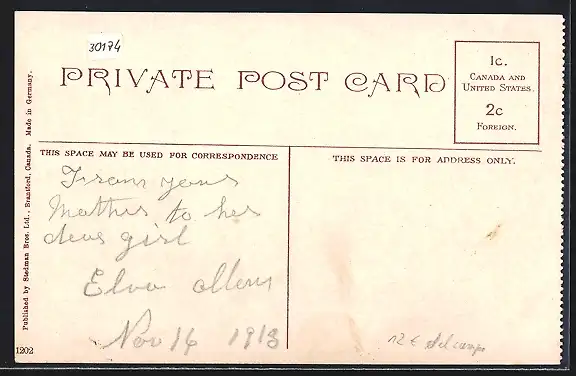 30174
PRIVATE POST CARD
1c.
CANADA AND
UNITED STATES.
2c
FOREIGN.
THIS SPACE MAY BE USED FOR CORRESPONDENCE
THIS SPACE IS FOR ADDRESS ONLY.
From your
Mother to her
dear girl
Elva
Nov 14 1913
12 €
Published by Stedman Bros. Ltd., Brantford, Canada. Made in Germany.
1202